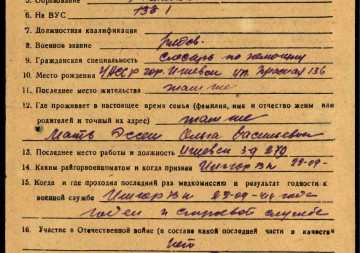 5. Образование
6. На ВУС 133/1
7. Должностная квалификация
8. Военное звание рядов.
9. Гражданская специальность слесарь по
10. Место рождения УАССР гор. Ижевск ул. Красная 136
11. Последнее место жительства там же
12. Где проживает в настоящее время семья (фамилия, имя и отчество жены или
родителей и точный их адрес) там же
Мать Ольга Васильевна
13. Последнее место работы и должность Ижевск з-д 279
14. Каким райгорвоенкоматом и когда призван Ижгор ВК 29-09-
15. Когда и где проходил последний раз медкомиссию и результат годности к
военной службе Ижгор ВК 29-09-46 года
годен к строевой службе
16. Участие в Отечественной войне (в составе какой последней части и в качестве
нет